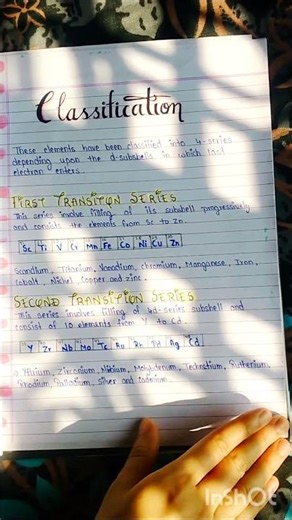 Classification
These elements have been classified into 4-series
depending upon the d-subshells in which last
electron enters.
FIRST TRANSITON SERIES
This series involve filling of its subshell progressively
and consists the elements from Sc to Zn.
Sc Ti V Cr Mn Fe Co Ni Cu Zn
Scandium, Titanium, Vanadium, chromium, Manganese, Iron,
cobalt, Nickel, Copper and zinc.
SECOND TRANSITION SERIES
This series involves filling of 4d-series subshell and
consist of 10 elements from Y to Cd.
Y Zr Nb Mo Tc Ru Rh Pd Ag Cd
Yttrium, Zirconium, Molybdenum, Technetium, Ruthenium,
Rhodium, Palladium, Silver and
InShOt